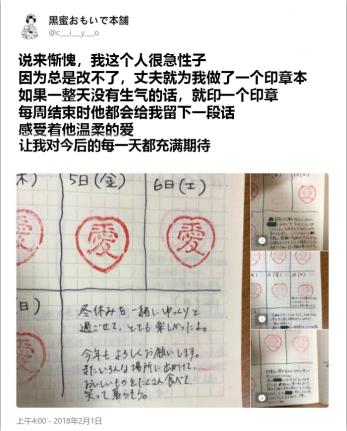 黒蜜おもいで本舗
@c__i__y__o
说来惭愧，我这个人很急性子
因为总是改不了，丈夫就为我做了一个印章本
如果一整天没有生气的话，就印一个印章
每周结束时他都会给我留下一段话
感受着他温柔的爱
让我对今后的每一天都充满期待
木）
5日（金）
6日（土）
愛
愛
日）
冬休みを一緒にゆっくりと
過ごせて、とても楽しかったよ。
今年もよろしくお願いします。
またいろんな場所に出かけて、
おいしいものをたくさん食べて、
笑って暮らそう。
上午4:00 - 2018年2月1日